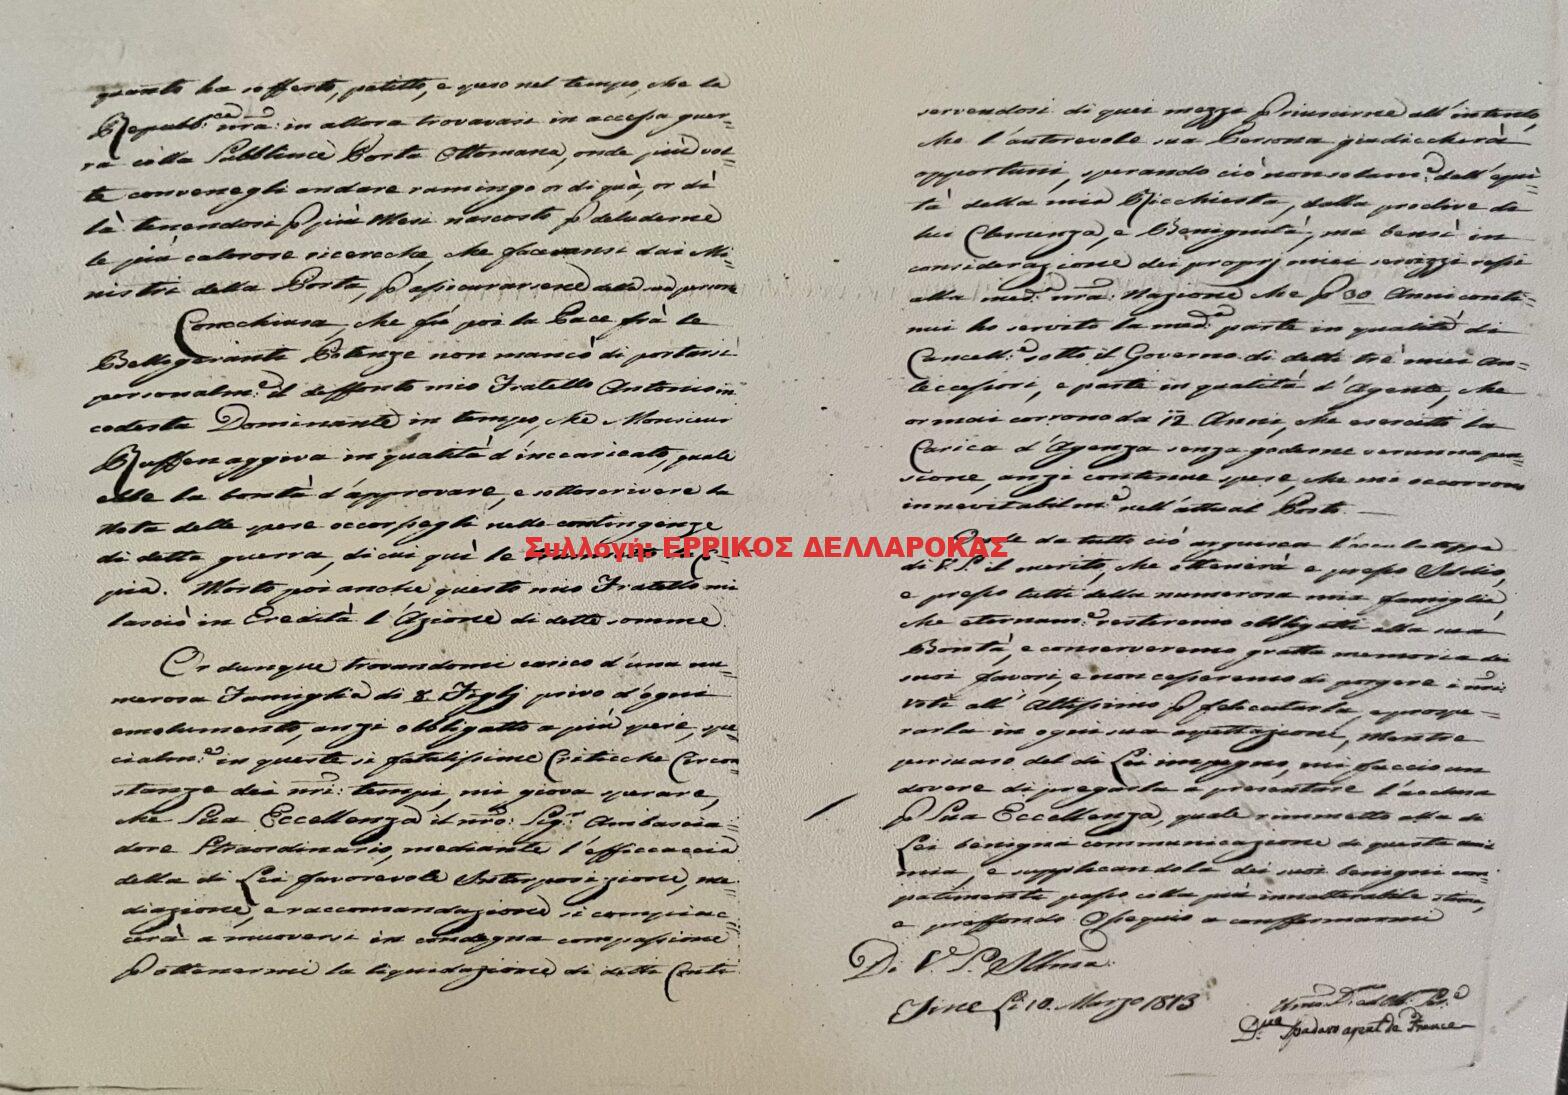 quanto ha sofferto, patitto, e speso nel tempo, che la
Repubb.ca nrã: in allora trovavasi in accesa guer-
ra colla Subblime Porta Ottomana, onde più vol-
te convenegli andare ramingo or di quà, or di
là tenendosi p più Mesi nascosto p deluderne
le più calorose ricereche, che facevansi dai Mi-
nistri della Porta, p assicurarsene della sua persona
Conchiusa, che fù poi la Pace frà le
Belligeranti Potenze non mancò di portarsi
personalm.e il deffonto mio Fratello Antonio in
codesta Dominante in tempo, che Monsieur
Ruffen aggiva in qualità d'inccaricato, quale
ebbe la bontà d'approvare, e sottoscrivere la
Nota delle spese occorsegli nelle contingenze
di detta guerra, di cui quì le trasmetto la Co-
pia. Morto poi anche questo mio Fratello mi
lasciò in Eredità l'Azione di dette somme.
Or dunque trovandomi carico d'una nu-
merosa Famiglia di 8 Figlj privo d'ogni
emolumento, anzi obbligatto a più spese, spe-
cialm.e in queste sì fatalissime Critiche Circon
stanze dei nrĩ: tempi, mi giova sperare,
che Sua Eccellenza il nrõ: Sig.r Ambascia-
dore Straordinario, mediante l'efficcaccia
della di Lei favorevole Interposizione, me-
diazione, e raccomandazione si compiac-
cerà a muoversi in condegna compassione
p ottenermi la liquidazione di detti Conti
servendosi di quei mezzi p riuscirne all'intento,
che l'autorevole sua Persona giudiccherà
opportuni, sperando ciò non solam.e dall'equi-
tà della mia Ricchiesta, dalla proclive di
lei Clemenza, e Benignità, ma bensì in
considerazione dei proprj miei servizzi resi
alla med.ma nrã: Nazione che p 30 Anni conti-
nui ho servito la med.ma parte in qualità di
Cancell.e sotto il Governo di detti trè miei An-
teccessori, e parte in qualità d'Agente, che
ormai corrono da 12 Anni, che esercito la
Carica d'Agenza senza goderne verunna pen-
sione, anzi continue spese, che mi occorrono
innevitabilm.e nell'attual Posto.
Συλλογή: ΕΡΡΙΚΟΣ ΔΕΛΛΑΡΟΚΑΣ
Onde da tutto ciò arguisca
di V.S. il merito, che ottenerà e presso Iddio,
e presso tutti della numerosa mia famiglia
che eternam.e resteremo obbligatti alla sua
Bontà, e conserveremo gratta memoria dei
suoi favori, e non cesseremo di porgere i nrĩ:
voti all'Altissimo p felicitarla, e prospe-
rarla in ogni sua aspettazione, Mentre
persuaso del di Lei impegno, mi faccio un
dovere di pregarla a presentare l'acclusa
p Sua Eccellenza, quale rimmetto alla di
Lei benigna communicazione di questa
mia, e supplicandola dei suoi benigni com-
patimenti passo colla più innalterabile stima,
e proffondo Ossequio a confformarmi
Di V.S. Illma:
Tine Li 10. Marzo 1813
Spadaro agent de France